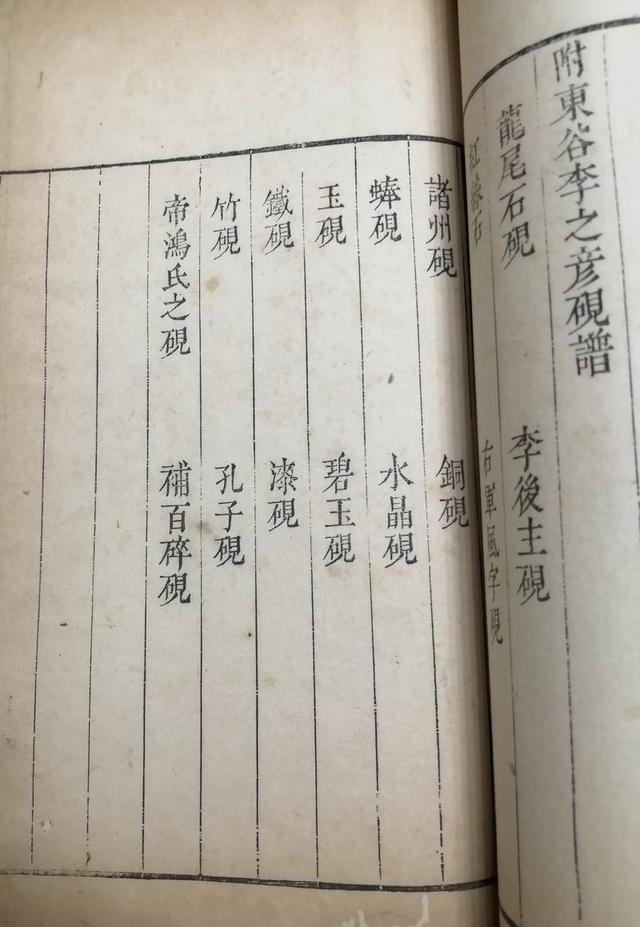 附東谷李之彦硯譜
龍尾石硯 李後主硯
紅絲石 右軍風字硯
諸州硯 銅硯
蜯硯 水晶硯
玉硯 碧玉硯
鐵硯 漆硯
竹硯 孔子硯
帝鴻氏之硯 補百碎硯